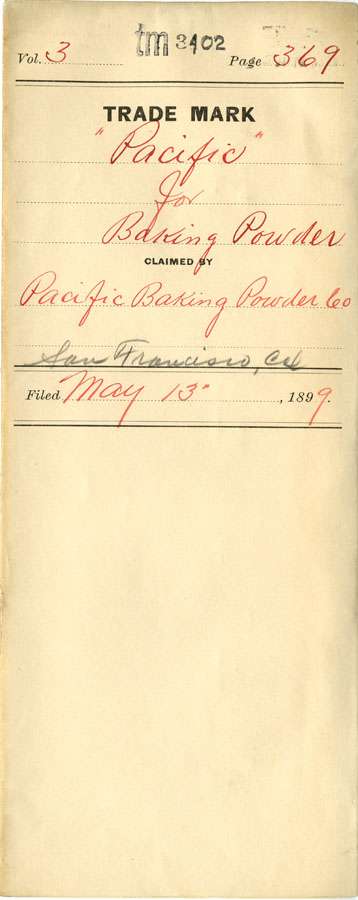 Vol. 3 tm 3402 Page 369
TRADE MARK
"Pacific"
for
Baking Powder
CLAIMED BY
Pacific Baking Powder Co
San Francisco, Cal
Filed May 13" , 1899.